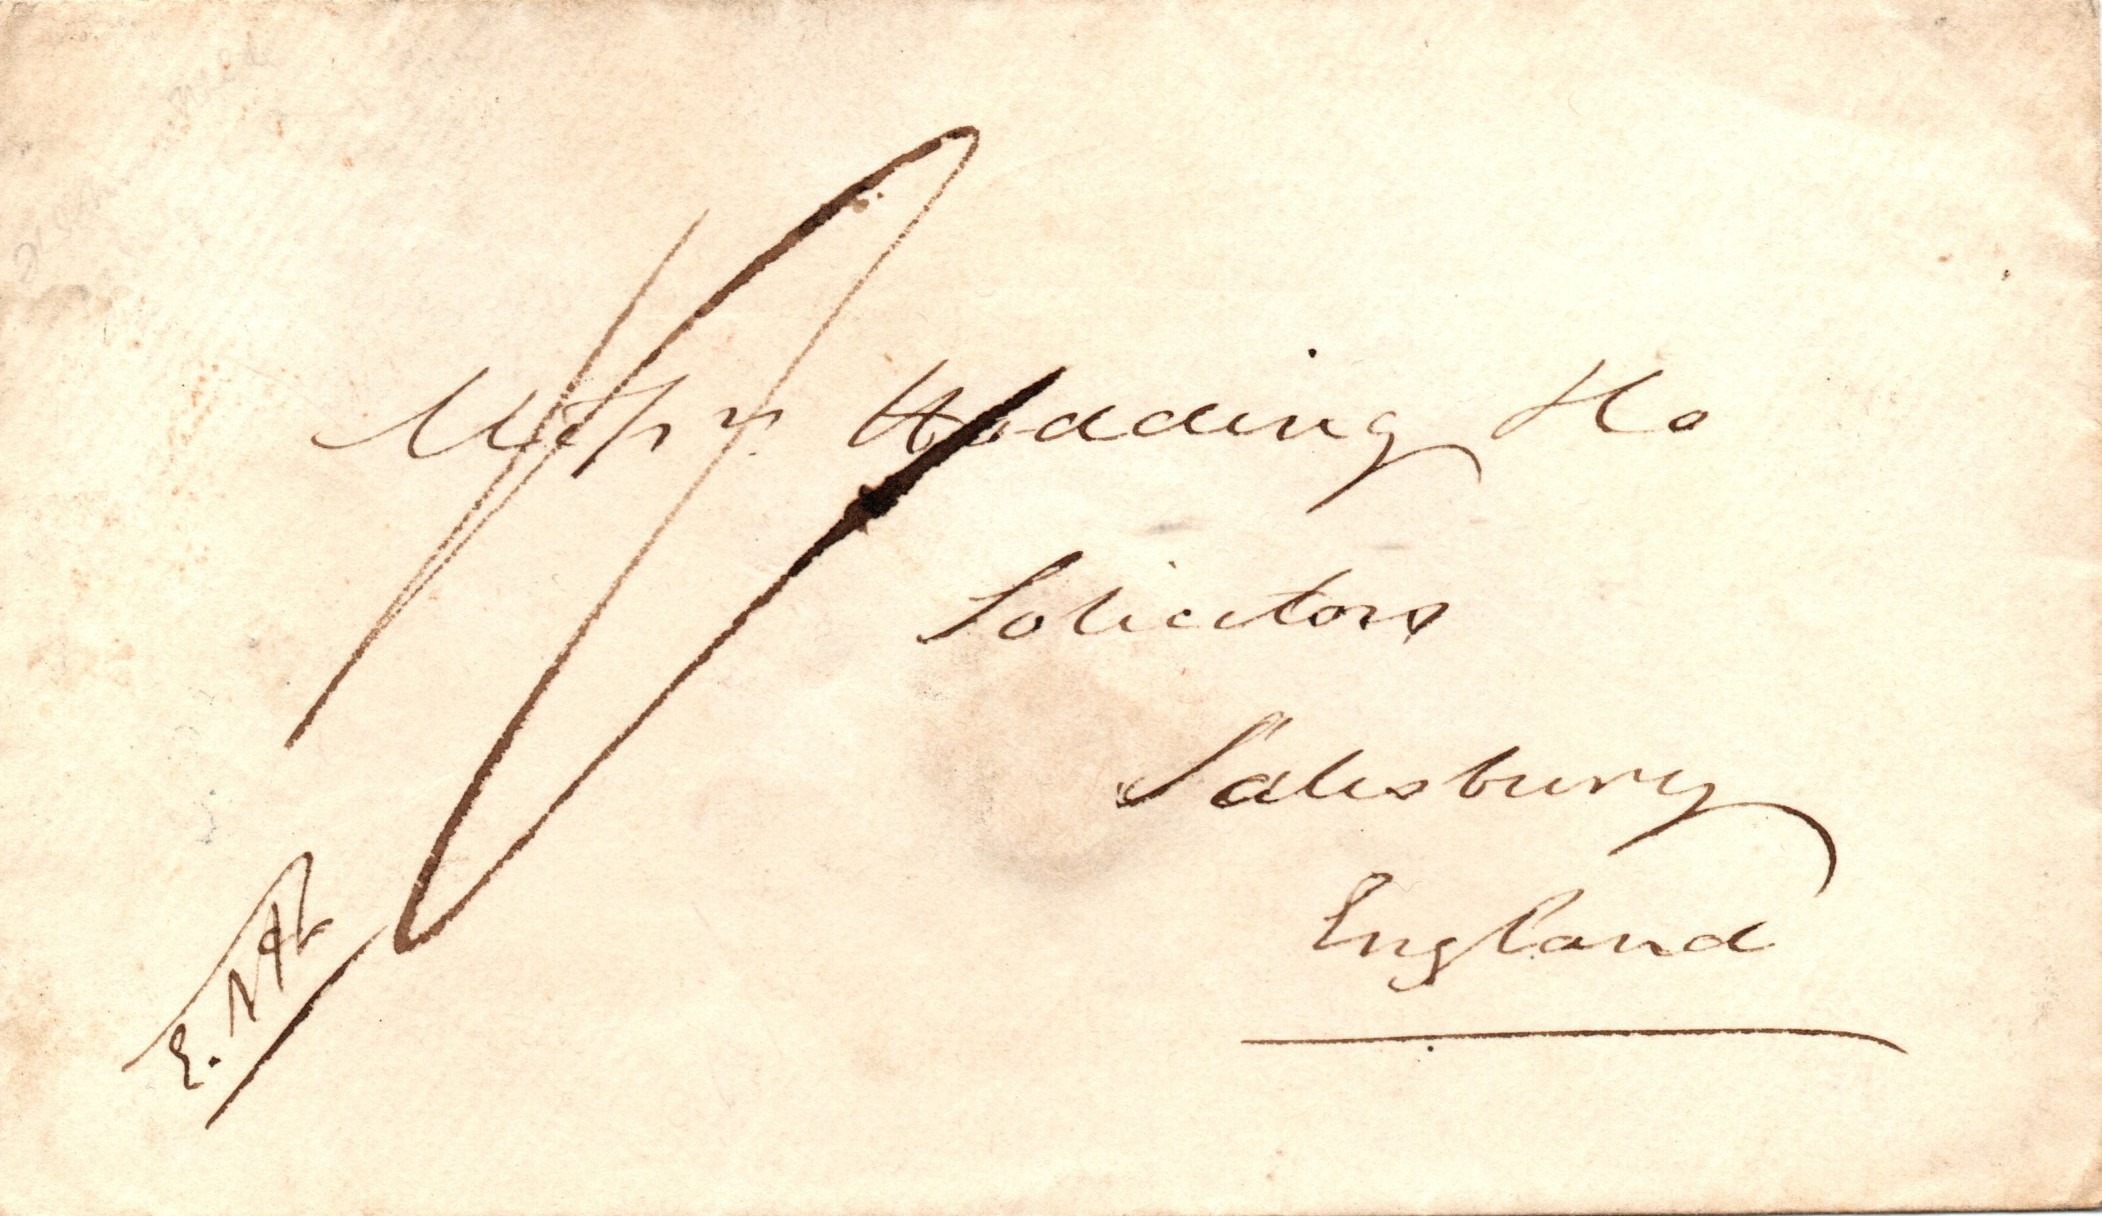 Messrs Hodding & Co
Solicitors
Salisbury
England